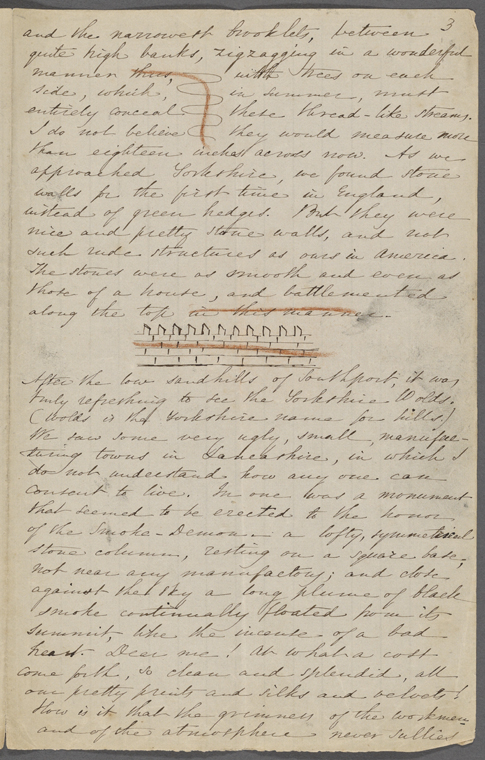 3
and the narrowest brooklets, between
quite high banks, zigzagging in a wonderful
manner thus, with trees on each
side, which, in summer, must
entirely conceal these thread-like streams.
I do not believe they would measure more
than eighteen inches across now. As we
approached Yorkshire, we found stone
walls for the first time in England,
instead of green hedges. But they were
nice and pretty stone walls, and not
such rude structures as ours in America.
The stones were as smooth and even as
those of a house, and battlemented
along the top in this manner.
After the low sandhills of Southport, it was
truly refreshing to see the Yorkshire Wolds.
(Wolds is the Yorkshire name for hills.)
We saw some very ugly, small, manufac-
turing towns in Lancashire, in which I
do not understand how any one can
consent to live. In one was a monument
that seemed to be erected to the honor
of the Smoke-Demon — a lofty, symmetrical
stone column, resting on a square base,
not near any manufactory; and close
against the sky a long plume of black
smoke continually floated from its
summit, like the incense of a bad
heart. Dear me! At what a cost
come forth, so clean and splendid, all
our pretty prints and silks and velvets!
How is it that the griminess of the workmen
and of the atmosphere never sullies